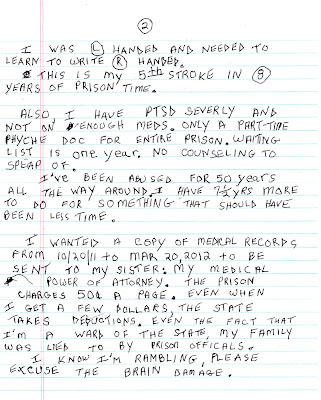 2
I WAS L HANDED AND NEEDED TO
LEARN TO WRITE R HANDED.
THIS IS MY 5th STROKE IN 8
YEARS OF PRISON TIME.
ALSO I HAVE PTSD SEVERLY AND
NOT ON ENOUGH MEDS. ONLY A PART-TIME
PHYCHE DOC FOR ENTIRE PRISON. WAITING
LIST IS ONE YEAR. NO COUNSELING TO
SPEAK OF.
I'VE BEEN ABUSED FOR 50 YEARS
ALL THE WAY AROUND. I HAVE 7½ YRS MORE
TO DO FOR SOMETHING THAT SHOULD HAVE
BEEN LESS TIME.
I WANTED A COPY OF MEDICAL RECORDS
FROM 10/20/11 TO MAR 20, 2012 TO BE
SENT TO MY SISTER. MY MEDICAL
POWER OF ATTORNEY. THE PRISON
CHARGES 50¢ A PAGE. EVEN WHEN
I GET A FEW DOLLARS, THE STATE
TAKES DEDUCTIONS. EVEN THE FACT THAT
I'M A WARD OF THE STATE, MY FAMILY
WAS LIED TO BY PRISON OFFICALS.
I KNOW I'M RAMBLING, PLEASE
EXCUSE THE BRAIN DAMAGE.